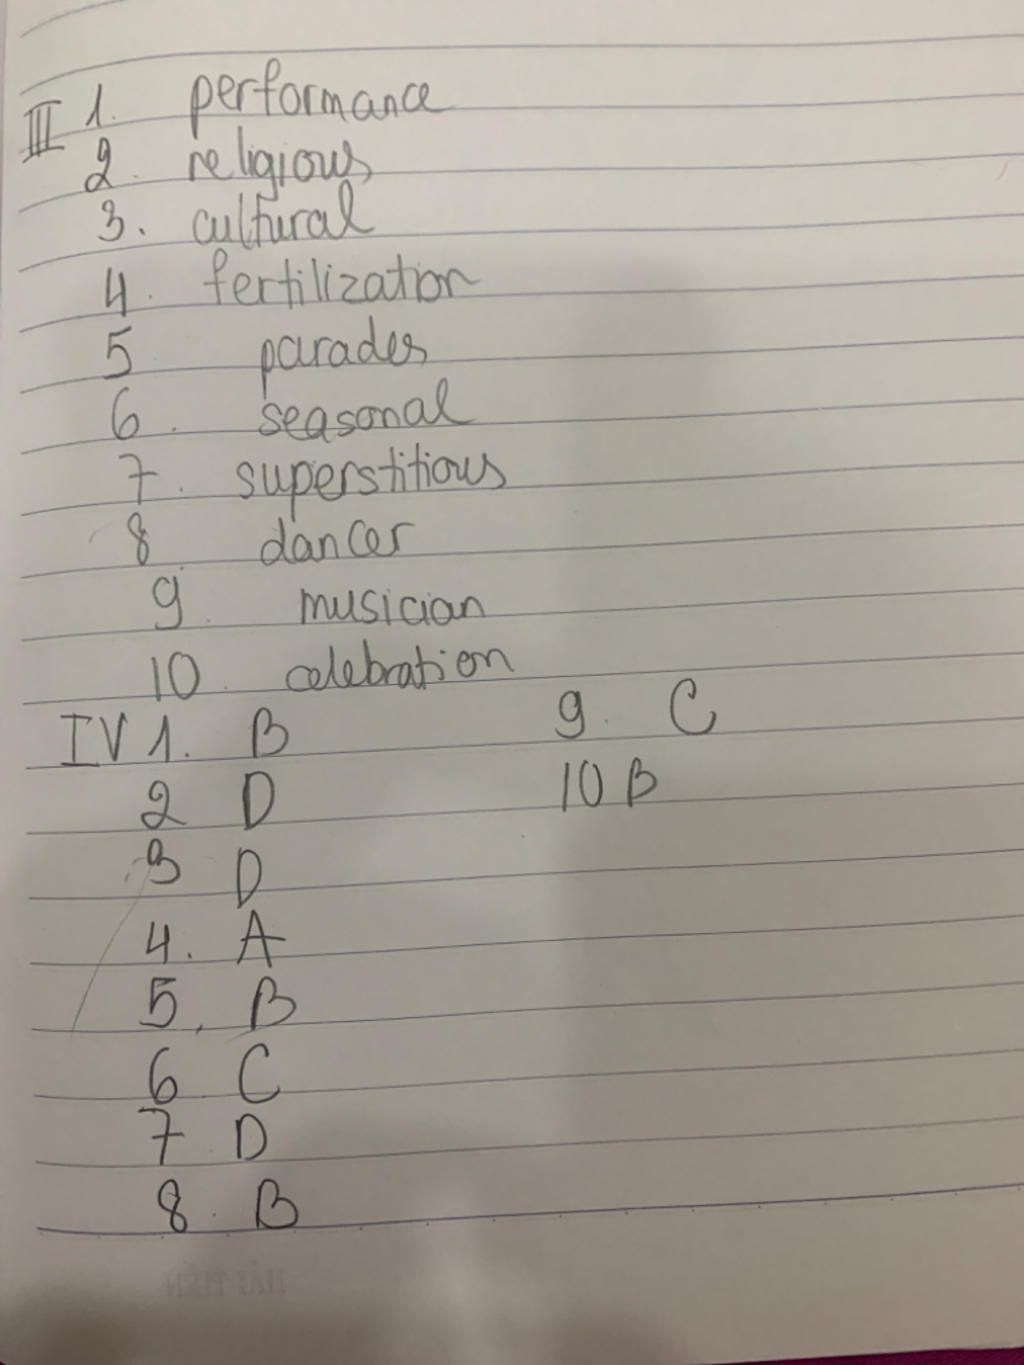 III 1. performance
2. religious
3. cultural
4. fertilization
5 parades
6. seasonal
7. superstitious
8 dancer
9. musician
10. celebration
IV 1. B
2 D
3 D
4. A
5. B
6. C
7. D
8. B
9. C
10 B
HẢI TIẾN